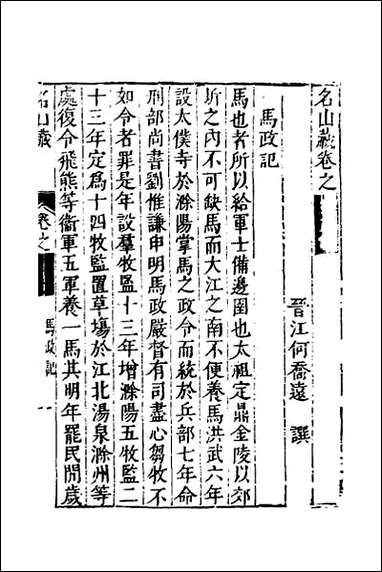 名山藏卷之
晉江何喬遠 譔
馬政記
馬也者所以給軍士備邊圉也太祖定鼎金陵以郊
圻之內不可缺馬而大江之南不便養馬洪武六年
設太僕寺於滁陽掌馬之政令而統於兵部七年命
刑部尚書劉惟謙申明馬政嚴督有司盡心芻牧不
如令者罪是年設羣牧監十三年增滁陽五牧監二
十三年定爲十四牧監置草塲於江北湯泉滁州等
處復令飛熊等衞軍五軍養一馬其明年罷民閒歲
名山藏
卷之
馬政記
一